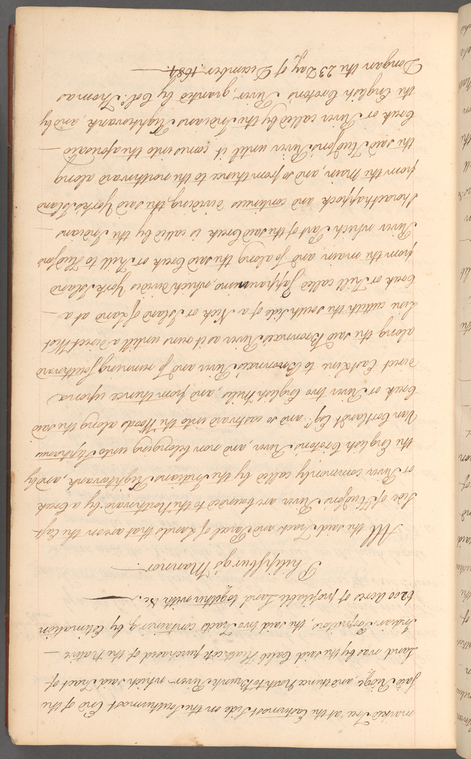 marked Tree at the Easternmost Side on the Southermost End of the
said Ridge, and thence North to Bronks River which said Tract of
Land was by the said Caleb Heathcote purchased of the Native
Indian Proprietors the said two Tracts containing by Estimation
6200 Acres of profitable Land together with &c.
Philippsburgs Mannor
All the said Tracts and Parcel of Lands that are on the East
Side of Hudsons River are bounded to the Northward by a Creek
or River commonly called by the Indians Kightawank, and by
the English Crotons River, and now belonging unto Stephanus
Van Cortlandt Esqr. and so eastward into the Woods along the said
Creek or River two English Miles, and from thence upon a
direct East line to Bronxes River and so running Southward
along the said Bronxes River as it runs until a direct West
Line cutteth the south side of a Neck or Island of Land at a
Creek or Kill called Papparinimo which divides York Island
from the main, and so along the said Creek or Kill to Hudsons
River which Part of the said Creek is called by the Indians
Shorackappock and continues dividing the said Yorks Island
from the Main and so from thence to the northward along
the said Hudsons River until it comes unto the aforesaid
Creek or River called by the Indians Kightawank and by
the English Crotons River, granted by Coll. Thomas
Dongan the 23 Day of December 1684.